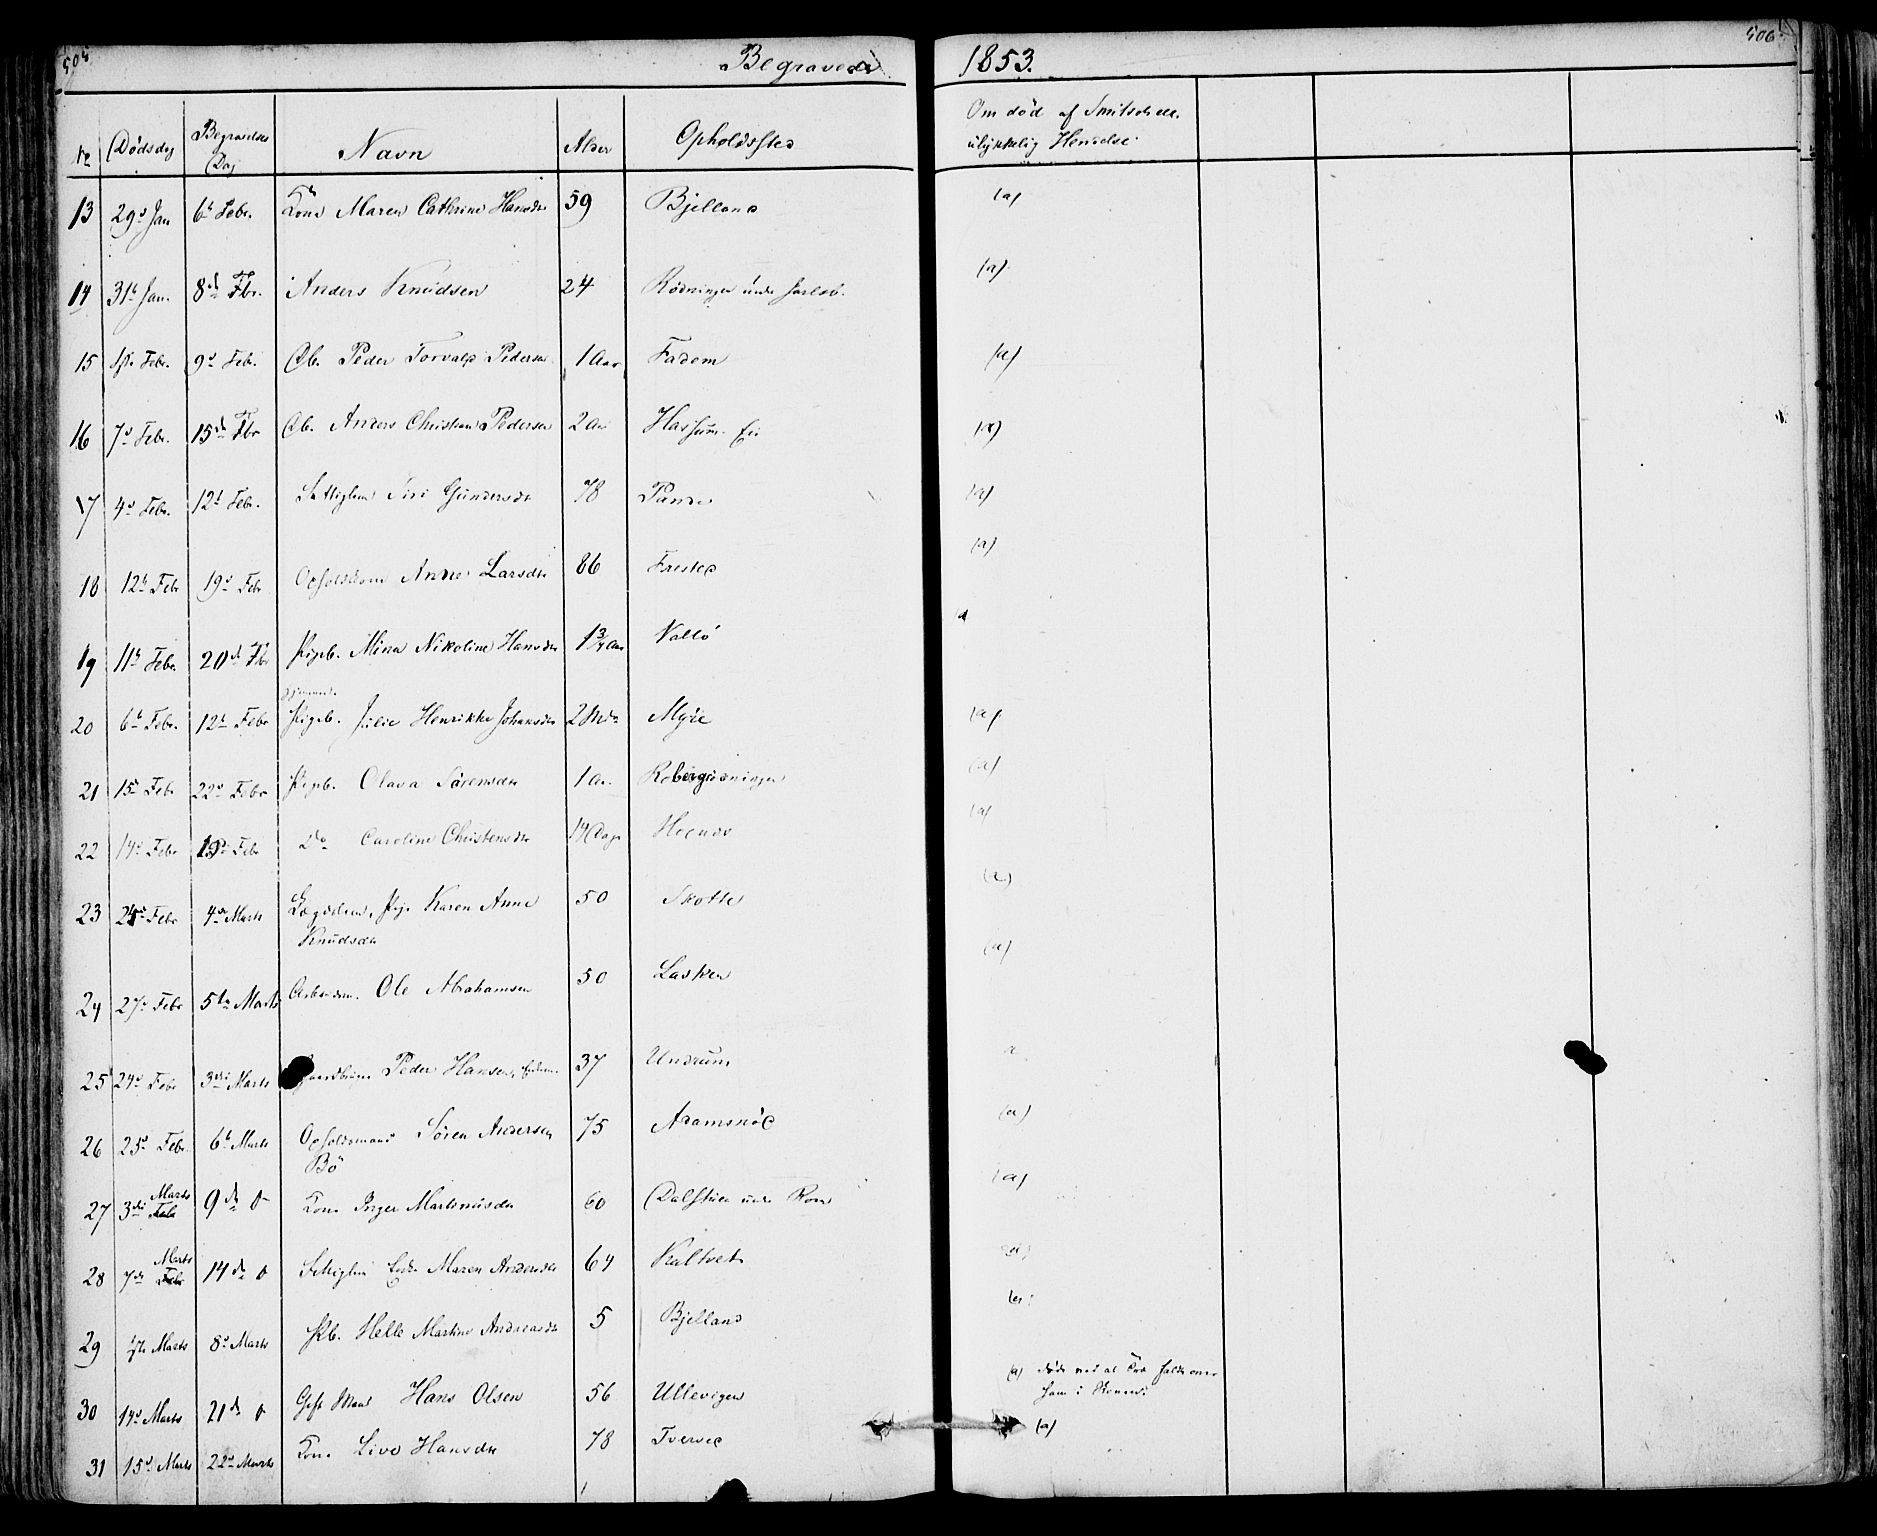 505
Begravede
1853.
506
No Dødsdag Begravelses Dag Navn Alder Opholdssted
Om død af Smitsot ell. ulykkelig Hendelse
13 29de Jan 6te Febr. Kone Maren Cathrine Hansdtr 59 Bjelland (a)
14 31te Jan. 8de Fbr. Anders Knudsen 24 Rødningen under Jarlsb. (a)
15 1ste Febr. 9de Febr. Pb. Peder Torvald Pedersen 1 Aar Fadom (a)
16 7de Febr. 15de Fbr Pb. Anders Christian Pedersen 2 Aar Hassum Eie (a)
17 4de Febr. 12te Febr. Siri Gundersdtr 78 (a)
18 12te Febr 19de Febr Anne Larsdtr 86 Frested (a)
19 11te Febr. 20de Fbr Pigeb. Mina Nikoline Hansdtr 1 3/4 Aar Vallø a
20 6te Febr. 12te Febr Hjemmed. Pigeb. Julie Henrikke Johansdtr 2 Mdr Myre (a)
21 15de Febr 22de Febr Pigeb. Olava Sørensdtr 1 Aar Robergrødningen (a)
22 14de Febr 19de Febr Do Caroline Christensdtr 14 Dage (a)
23 24de Febr 4de Marts Lægdslem, Pige Karen Anne 50 Skotte (a)
Knudsdtr
24 27de Febr 5te Marts Arbeidsm. Ole Abrahamsen 50 Lasken (a)
25 24de Febr 3die Marts Gaardbruger Peder Hansen, 37 Undrum a
26 25de Febr. 6te Marts Opholdsmand Søren Andersen 75 Adamsrød (a)
Bø
27 3die Marts 9de o Kone Inger Martinusdtr 60 Dalstuen under Rom (a)
28 7de Marts 14de o Enke Maren Andersdtr 64 Kaltvet (a)
29 1ste Marts 8de Marts Pb. Helle Martine Andreasdtr 5 Bjelland (a)
30 14de Marts 21de o Gift Mand Hans Olsen 56 Ullevigen (a) døde ved at Træ faldt over
ham i Skoven.
31 15de Marts 22de Marts Kone Live Hansdtr 78 Tverved (a)